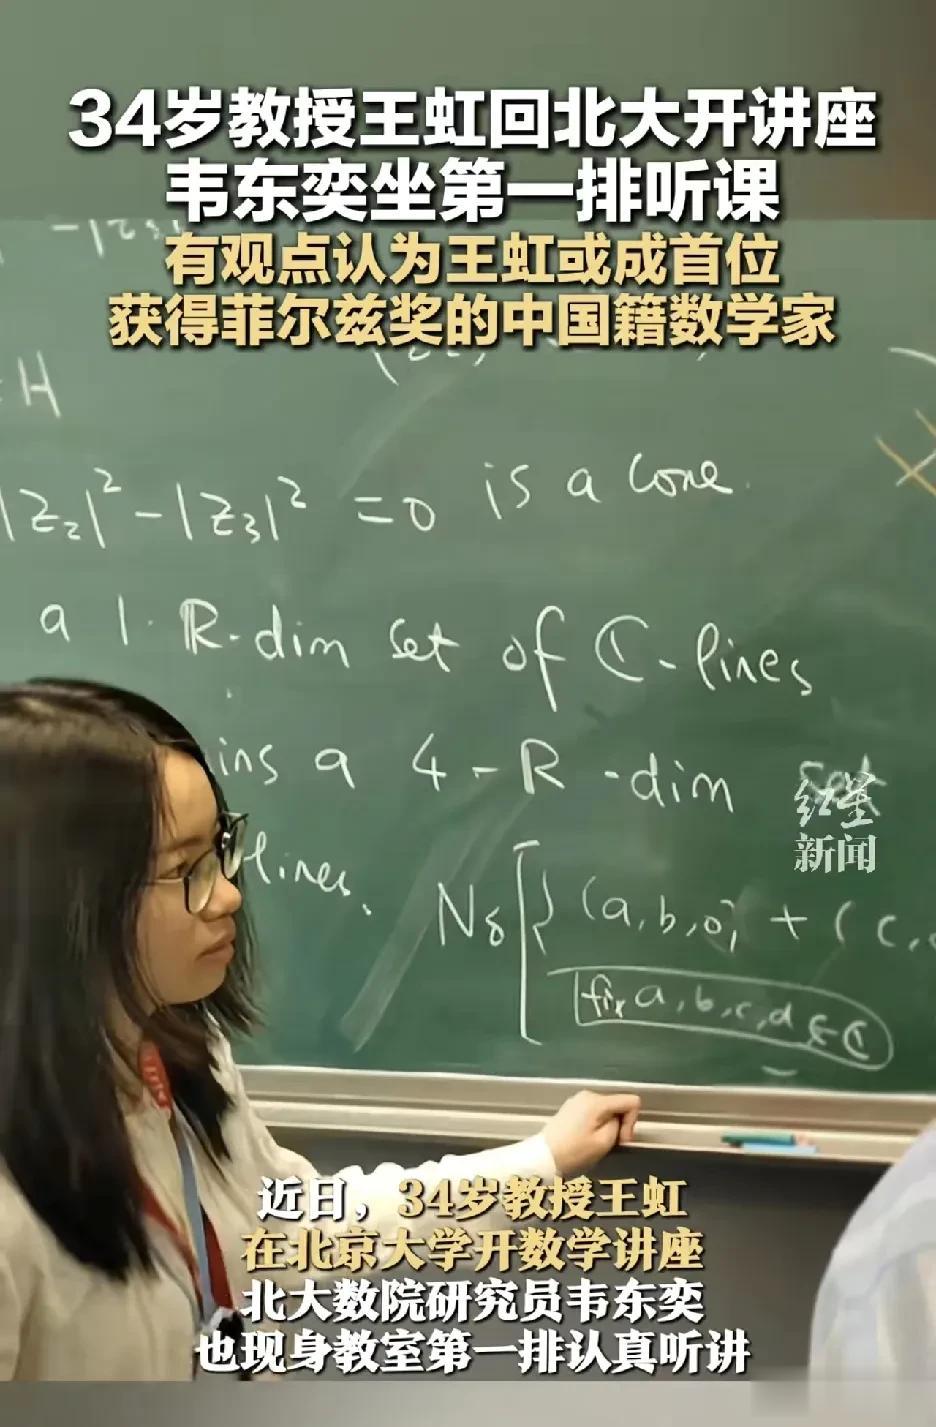 34岁教授王虹回北大开讲座
韦东奕坐第一排听课
有观点认为王虹或成首位
获得菲尔兹奖的中国籍数学家
H
|Z₂|² - |Z₃|² = 0 is a cone.
a 1-ℝ-dim set of ℂ-lines
ins a 4-ℝ-dim set
lines.
红星
新闻
N_δ [ { (a, b, 0) + (c,
fix a, b, c, d ∈ ℂ
近日，34岁教授王虹
在北京大学开数学讲座
北大数院研究员韦东奕
也现身教室第一排认真听讲